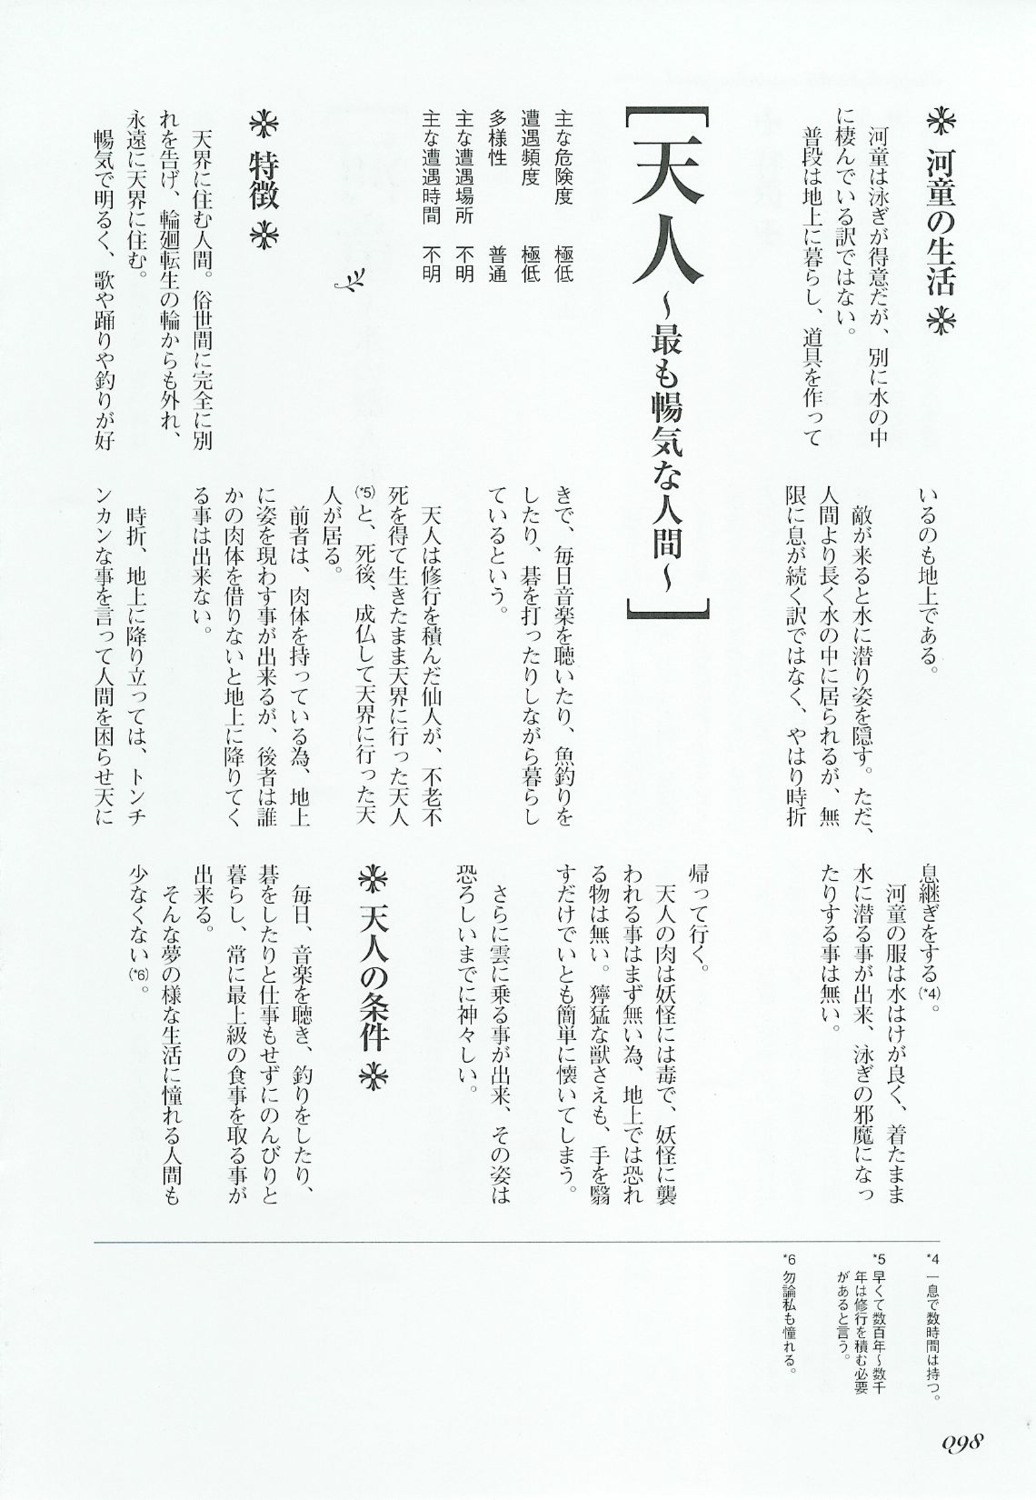 河童の生活
河童は泳ぎが得意だが、別に水の中
に棲んでいる訳ではない。
普段は地上に暮らし、道具を作って
いるのも地上である。
敵が来ると水に潜り姿を隠す。ただ、
人間より長く水の中に居られるが、無
限に息が続く訳ではなく、やはり時折
息継ぎをする(*4)。
河童の服は水はけが良く、着たまま
水に潜る事が出来、泳ぎの邪魔になっ
たりする事は無い。
[天人～最も暢気な人間～]
主な危険度 極低
遭遇頻度 極低
多様性 普通
主な遭遇場所 不明
主な遭遇時間 不明
特徴
天界に住む人間。俗世間に完全に別
れを告げ、輪廻転生の輪からも外れ、
永遠に天界に住む。
暢気で明るく、歌や踊りや釣りが好
きで、毎日音楽を聴いたり、魚釣りを
したり、碁を打ったりしながら暮らし
ているという。
天人は修行を積んだ仙人が、不老不
死を得て生きたまま天界に行った天人
(*5)と、死後、成仏して天界に行った天
人が居る。
前者は、肉体を持っている為、地上
に姿を現わす事が出来るが、後者は誰
かの肉体を借りないと地上に降りてく
る事は出来ない。
時折、地上に降り立っては、トンチ
ンカンな事を言って人間を困らせ天に
帰って行く。
天人の肉は妖怪には毒で、妖怪に襲
われる事はまず無い為、地上では恐れ
る物は無い。獰猛な獣さえも、手を翳
すだけでいとも簡単に懐いてしまう。
さらに雲に乗る事が出来、その姿は
恐ろしいまでに神々しい。
天人の条件
毎日、音楽を聴き、釣りをしたり、
碁をしたりと仕事もせずにのんびりと
暮らし、常に最上級の食事を取る事が
出来る。
そんな夢の様な生活に憧れる人間も
少なくない(*6)。
*4 一息で数時間は持つ。
*5 早くて数百年～数千
年は修行を積む必要
があると言う。
*6 勿論私も憧れる。
098